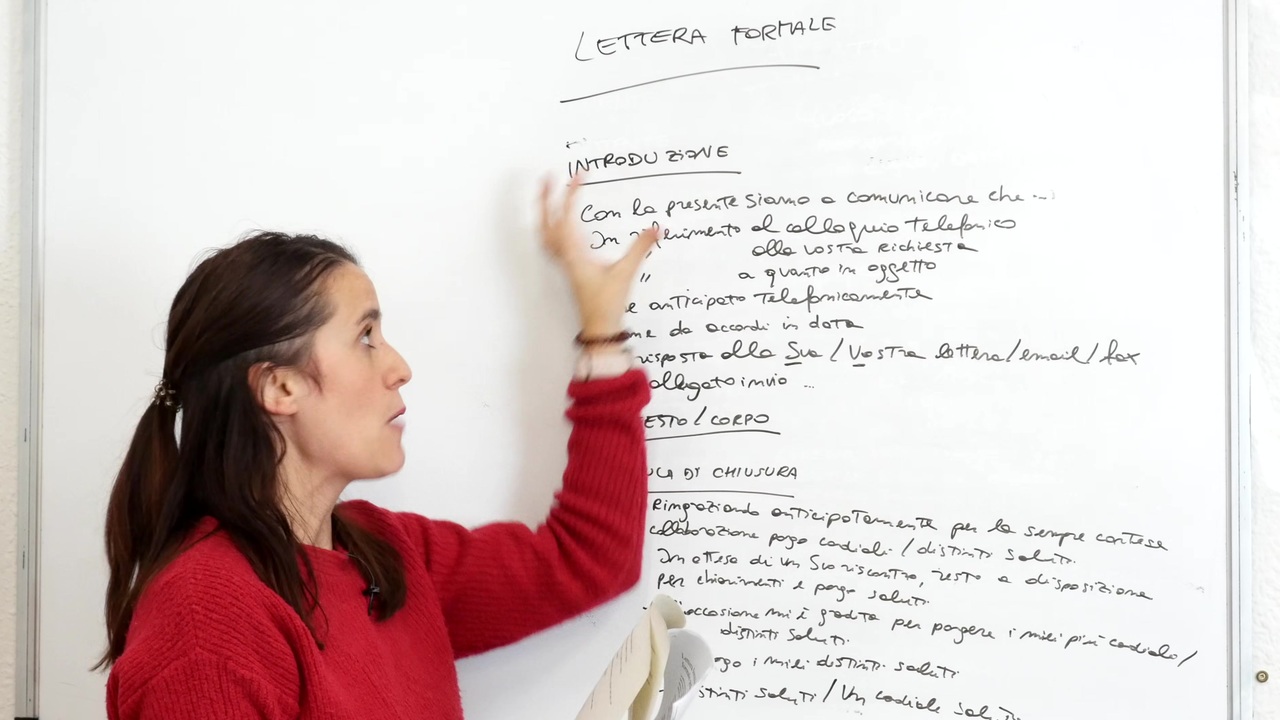 LETTERA FORMALE
INTRODUZIONE
Con la presente siamo a comunicare che ...
In riferimento al colloquio telefonico
" alla vostra richiesta
" a quanto in oggetto
anticipato telefonicamente
da accordi in data
risposta alla Sua / Vostra lettera / email / fax
allegato invio ...
ESTO / CORPO
DI CHIUSURA
Ringraziando anticipatamente per la sempre cortese
collaborazione porgo cordiali / distinti saluti.
In attesa di un Suo riscontro, resto a disposizione
per chiarimenti e porgo saluti.
occasione mi è gradita per porgere i miei più cordiali /
distinti saluti.
i miei distinti saluti
stinti saluti / Un cordiale saluto